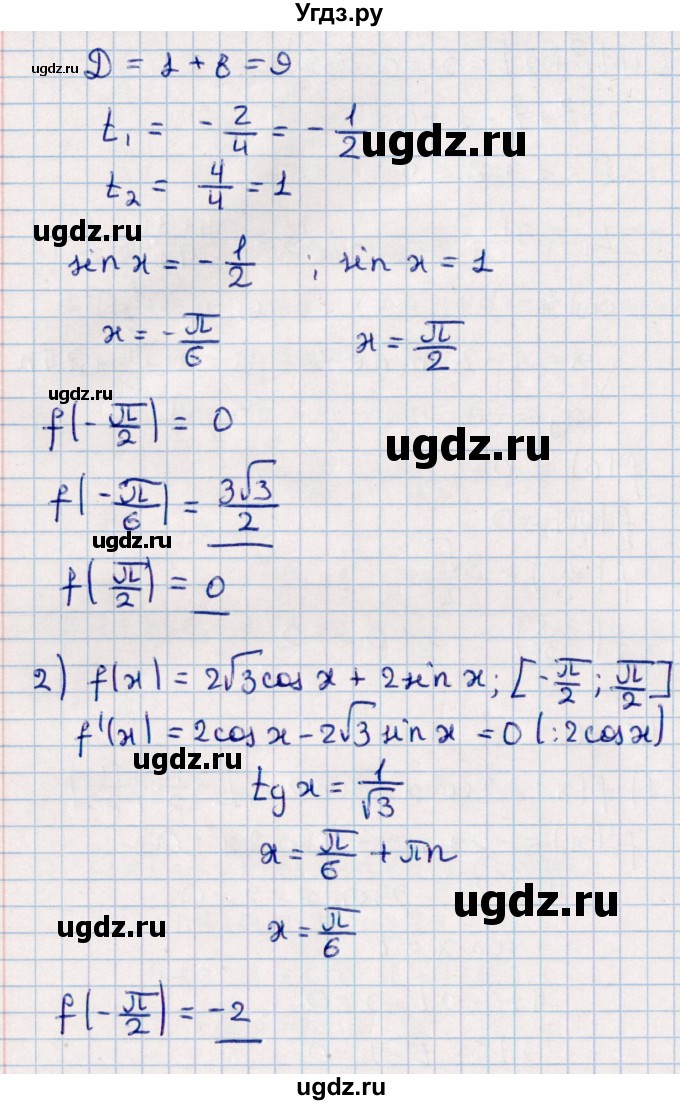 Угдз.ру
ugdz.ru Д = 1 + 8 = 9
t₁ = - 2/4 = - 1/2 ugdz.ru
t₂ = 4/4 = 1
ugdz.ru
sin x = - 1/2 ; sin x = 1
x = - π/6 x = π/2
ugdz.ru
f(- π/2) = 0 ugdz.ru
f(- π/6) = 3√3/2
ugdz.ru
f(π/2) = 0
2) f(x) = 2√3cos x + 2sin x; [- π/2 ; π/2]
f'(x) = 2cos x - 2√3 sin x = 0 (:2cos x)
ugdz.ru
tg x = 1/√3
x = π/6 + πn
ugdz.ru
ugdz.ru x = π/6
f(- π/2) = -2
ugdz.ru